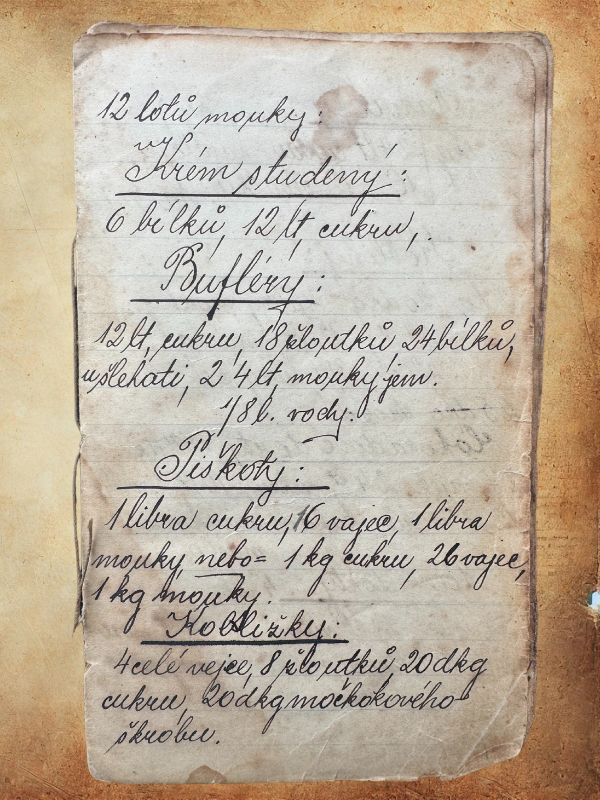 12 lotů mouky:
Krém studený:
6 bílků, 12 lt, cukru,.
Buflérý:
12 lt, cukru, 18 žloutků, 24 bílků,
ušlehati, 24 lt, mouky jem.
1/8 l. vody.
Piškoty:
1 libra cukru, 16 vajec, 1 libra
mouky nebo= 1 kg cukru, 26 vajec,
1 kg mouky.
Kobližky:
4 celé vejce, 8 žloutků, 20 dkg
cukru, 20 dkg močkokového
škrobu.